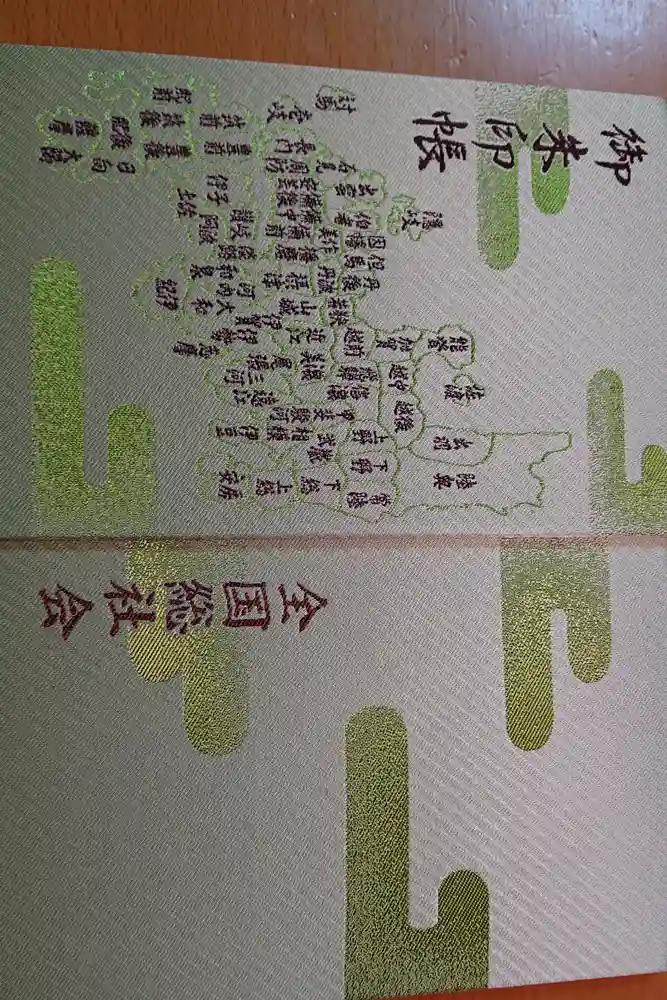 御朱印帳
陸奥
出羽
佐渡
能登
越後
越中
加賀
常陸
下野
上野
飛騨
越前
若狭
下総
武蔵
信濃
美濃
甲斐
近江
上総
相模
駿河
尾張
三河
安房
伊豆
遠江
伊賀
伊勢
志摩
隠岐
丹後
但馬
因幡
伯耆
出雲
丹波
美作
石見
山城
摂津
播磨
備前
備中
備後
安芸
周防
長門
河内
和泉
大和
紀伊
淡路
讃岐
阿波
伊予
土佐
対馬
壱岐
筑前
豊前
肥前
筑後
豊後
肥後
日向
薩摩
大隅
全国総社会